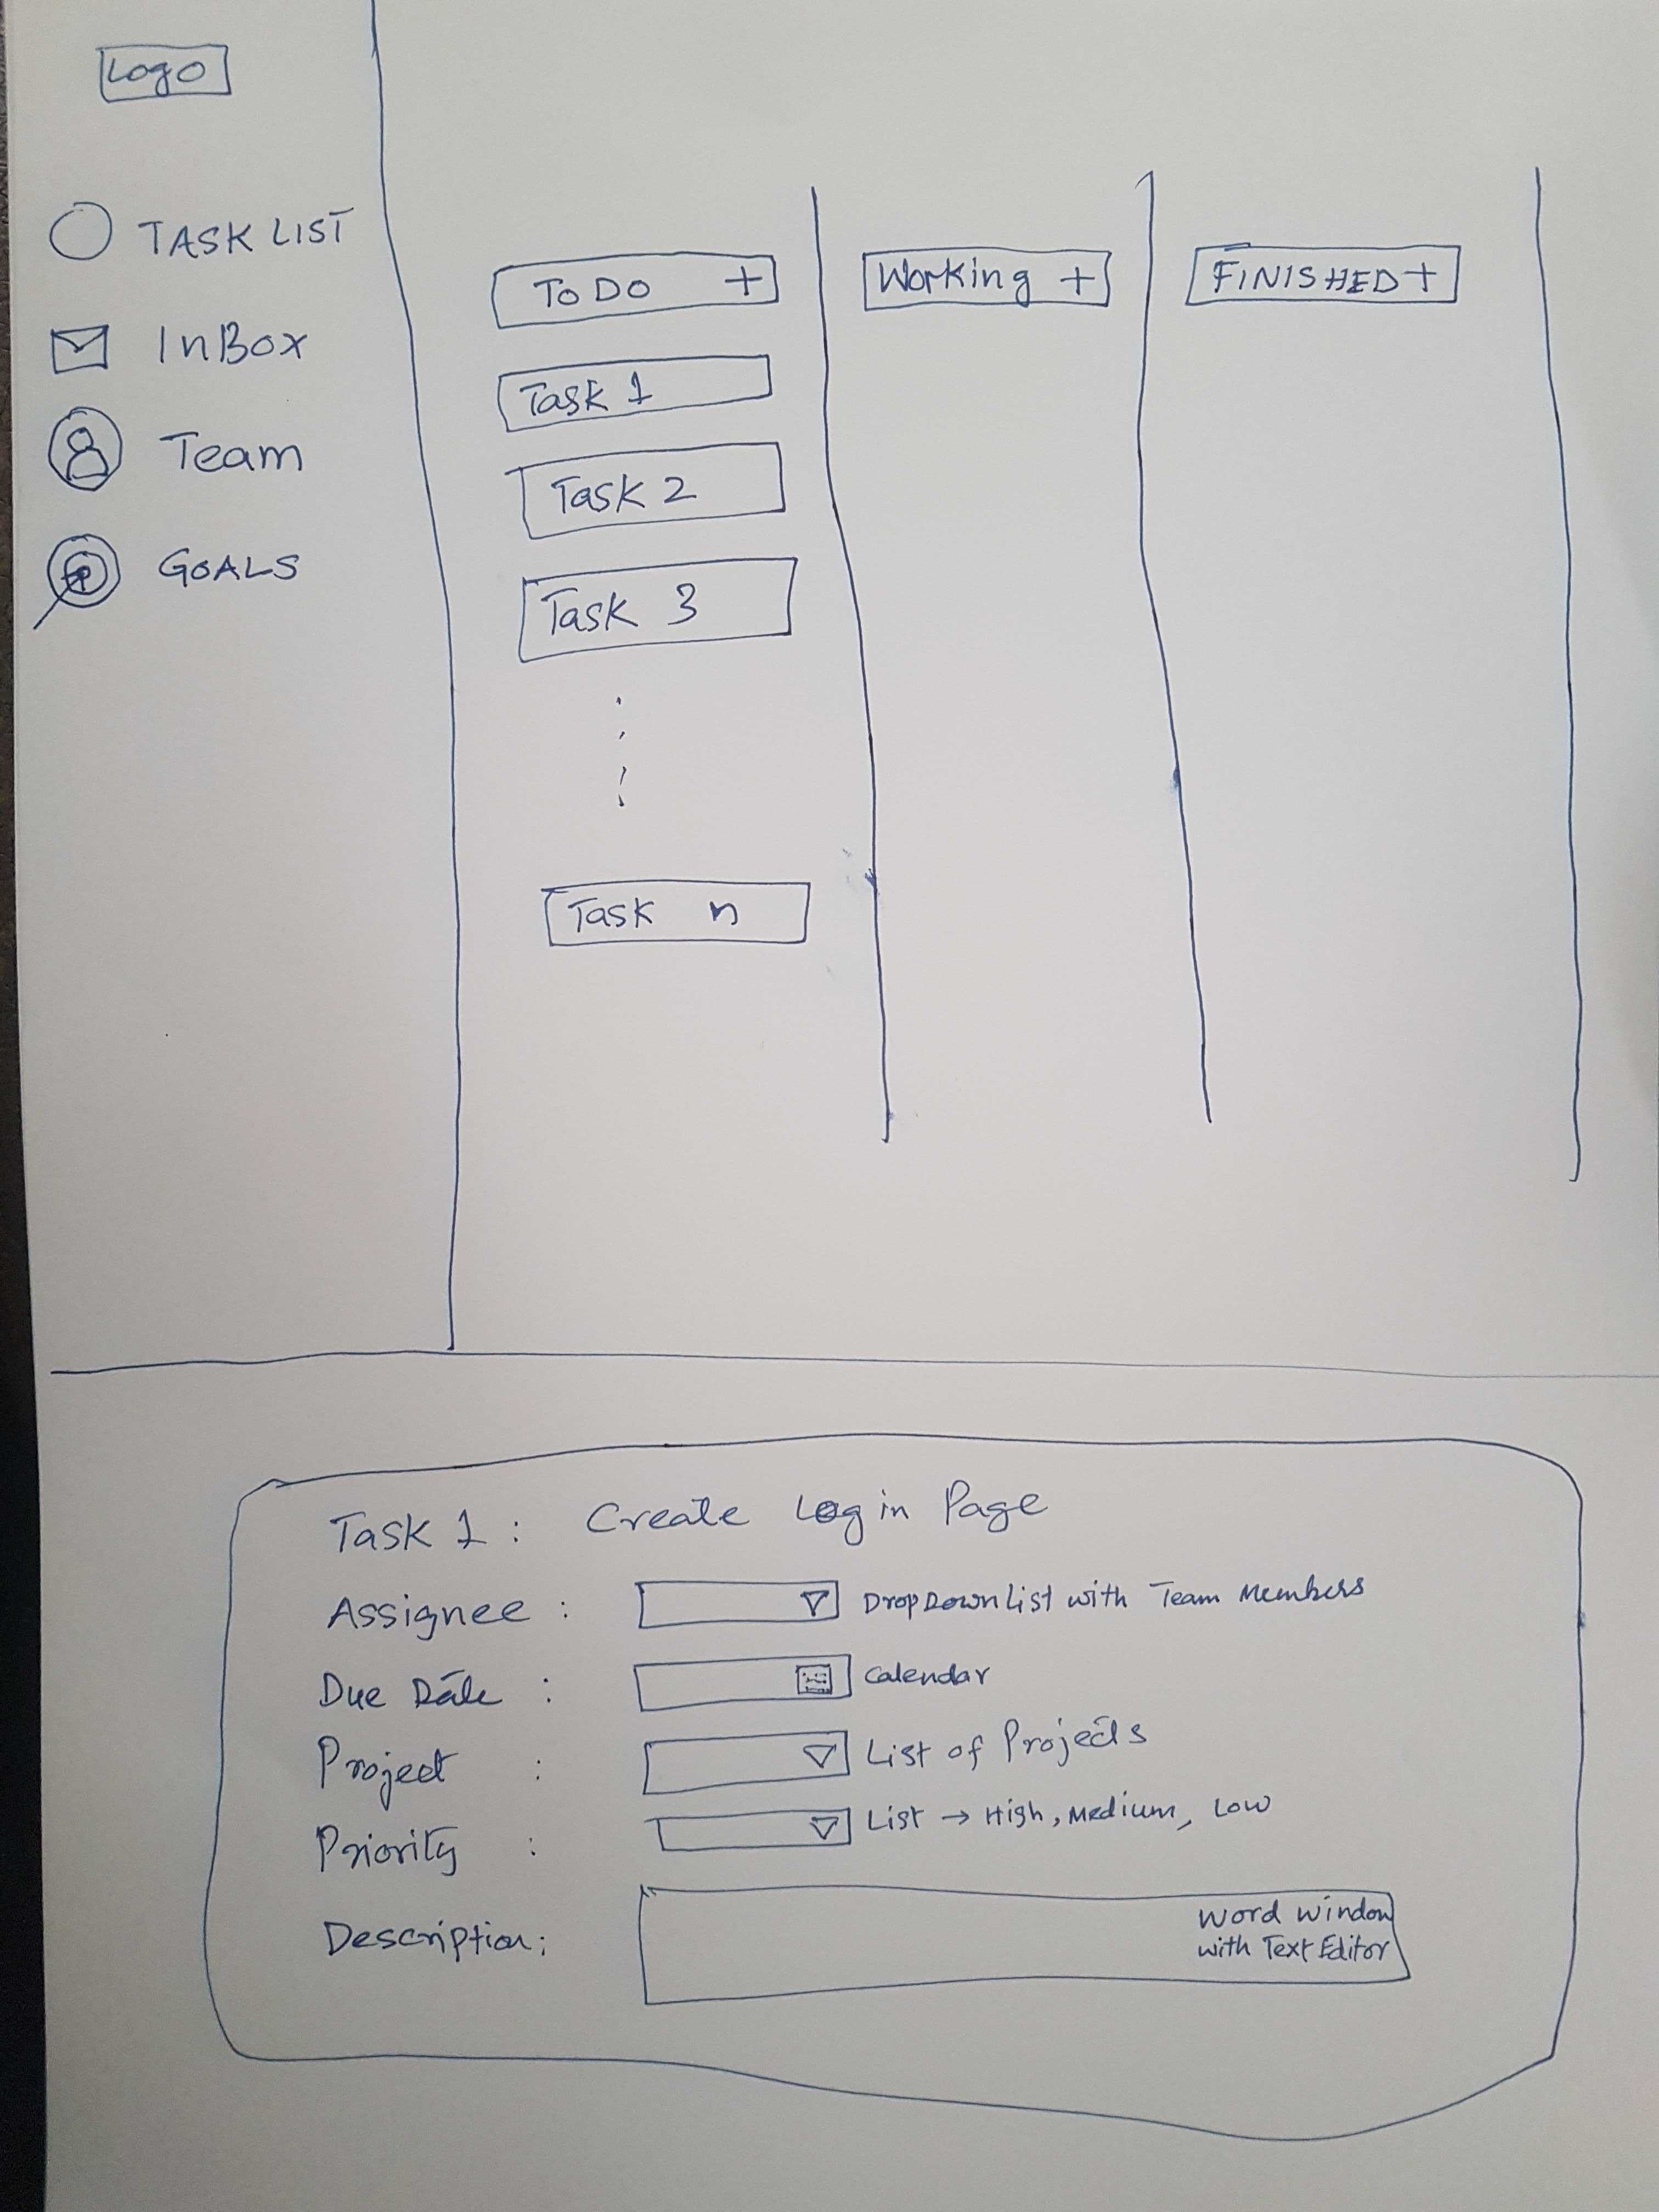 Logo
TASK LIST
InBox
Team
GOALS
To Do +
Working +
FINISHED +
Task 1
Task 2
Task 3
Task n
Task 1 : Create Login Page
Assignee : DropDown List with Team Members
Due Date : Calendar
Project : List of Projects
Priority : List → High, Medium, Low
Description:
Word Window
with Text Editor